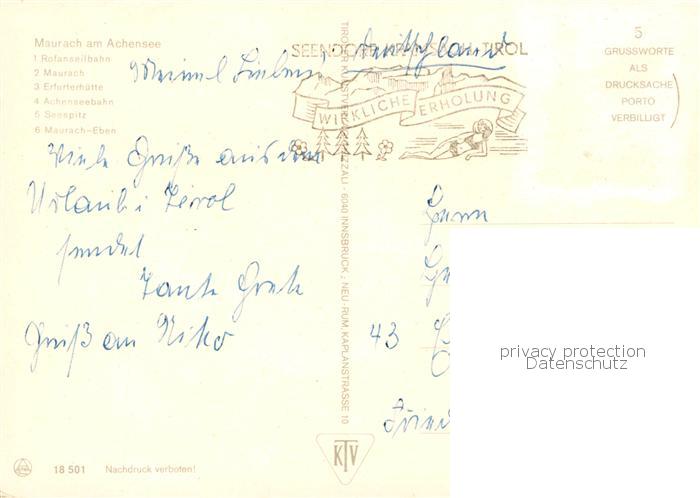 Maurach am Achensee
1 Rofanseilbahn
2 Maurach
3 Erfurterhütte
4 Achenseebahn
5 Seespitz
6 Maurach-Eben
Deutschland
SEENDORF TIROL
WIRKLICHE ERHOLUNG
5
GRUSSWORTE
ALS
DRUCKSACHE
PORTO
VERBILLIGT
Viele Grüße aus dem
Urlaub i Tirol
sendet
Tante Grete
Gruß an Niko
6040 INNSBRUCK, NEU-RUM, KAPLANSTRASSE 10
43
privacy protection
Datenschutz
KTV
18 501 Nachdruck verboten!